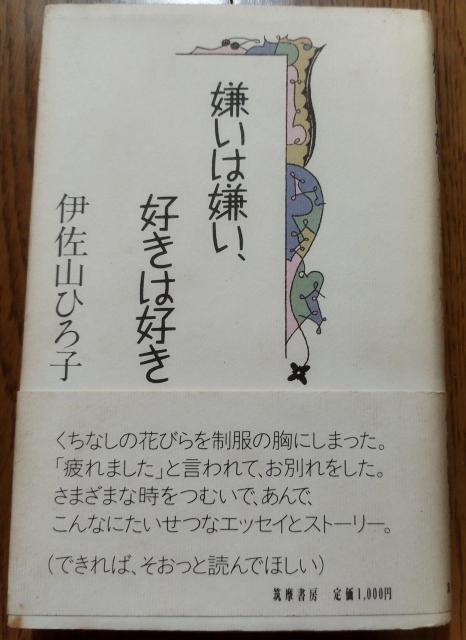 嫌いは嫌い、
好きは好き
伊佐山ひろ子
くちなしの花びらを制服の胸にしまった。
「疲れました」と言われて、お別れをした。
さまざまな時をつむいで、あんで、
こんなにたいせつなエッセイとストーリー。
(できれば、そおっと読んでほしい)
筑摩書房 定価1,000円